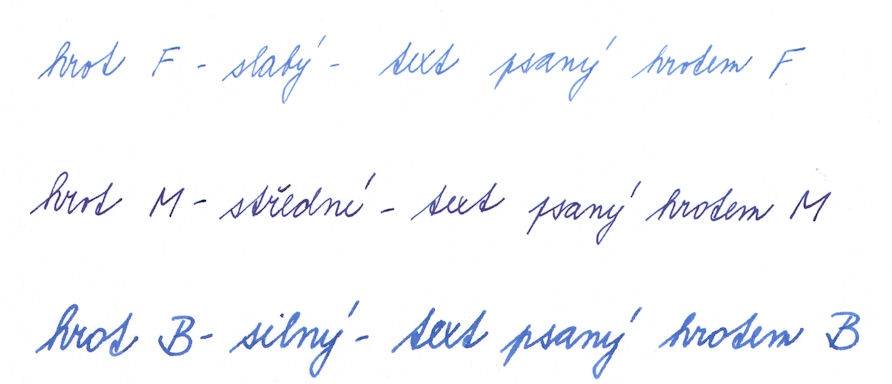 hrot F - slabý - text psaný hrotem F
hrot M - střední - text psaný hrotem M
hrot B - silný - text psaný hrotem B